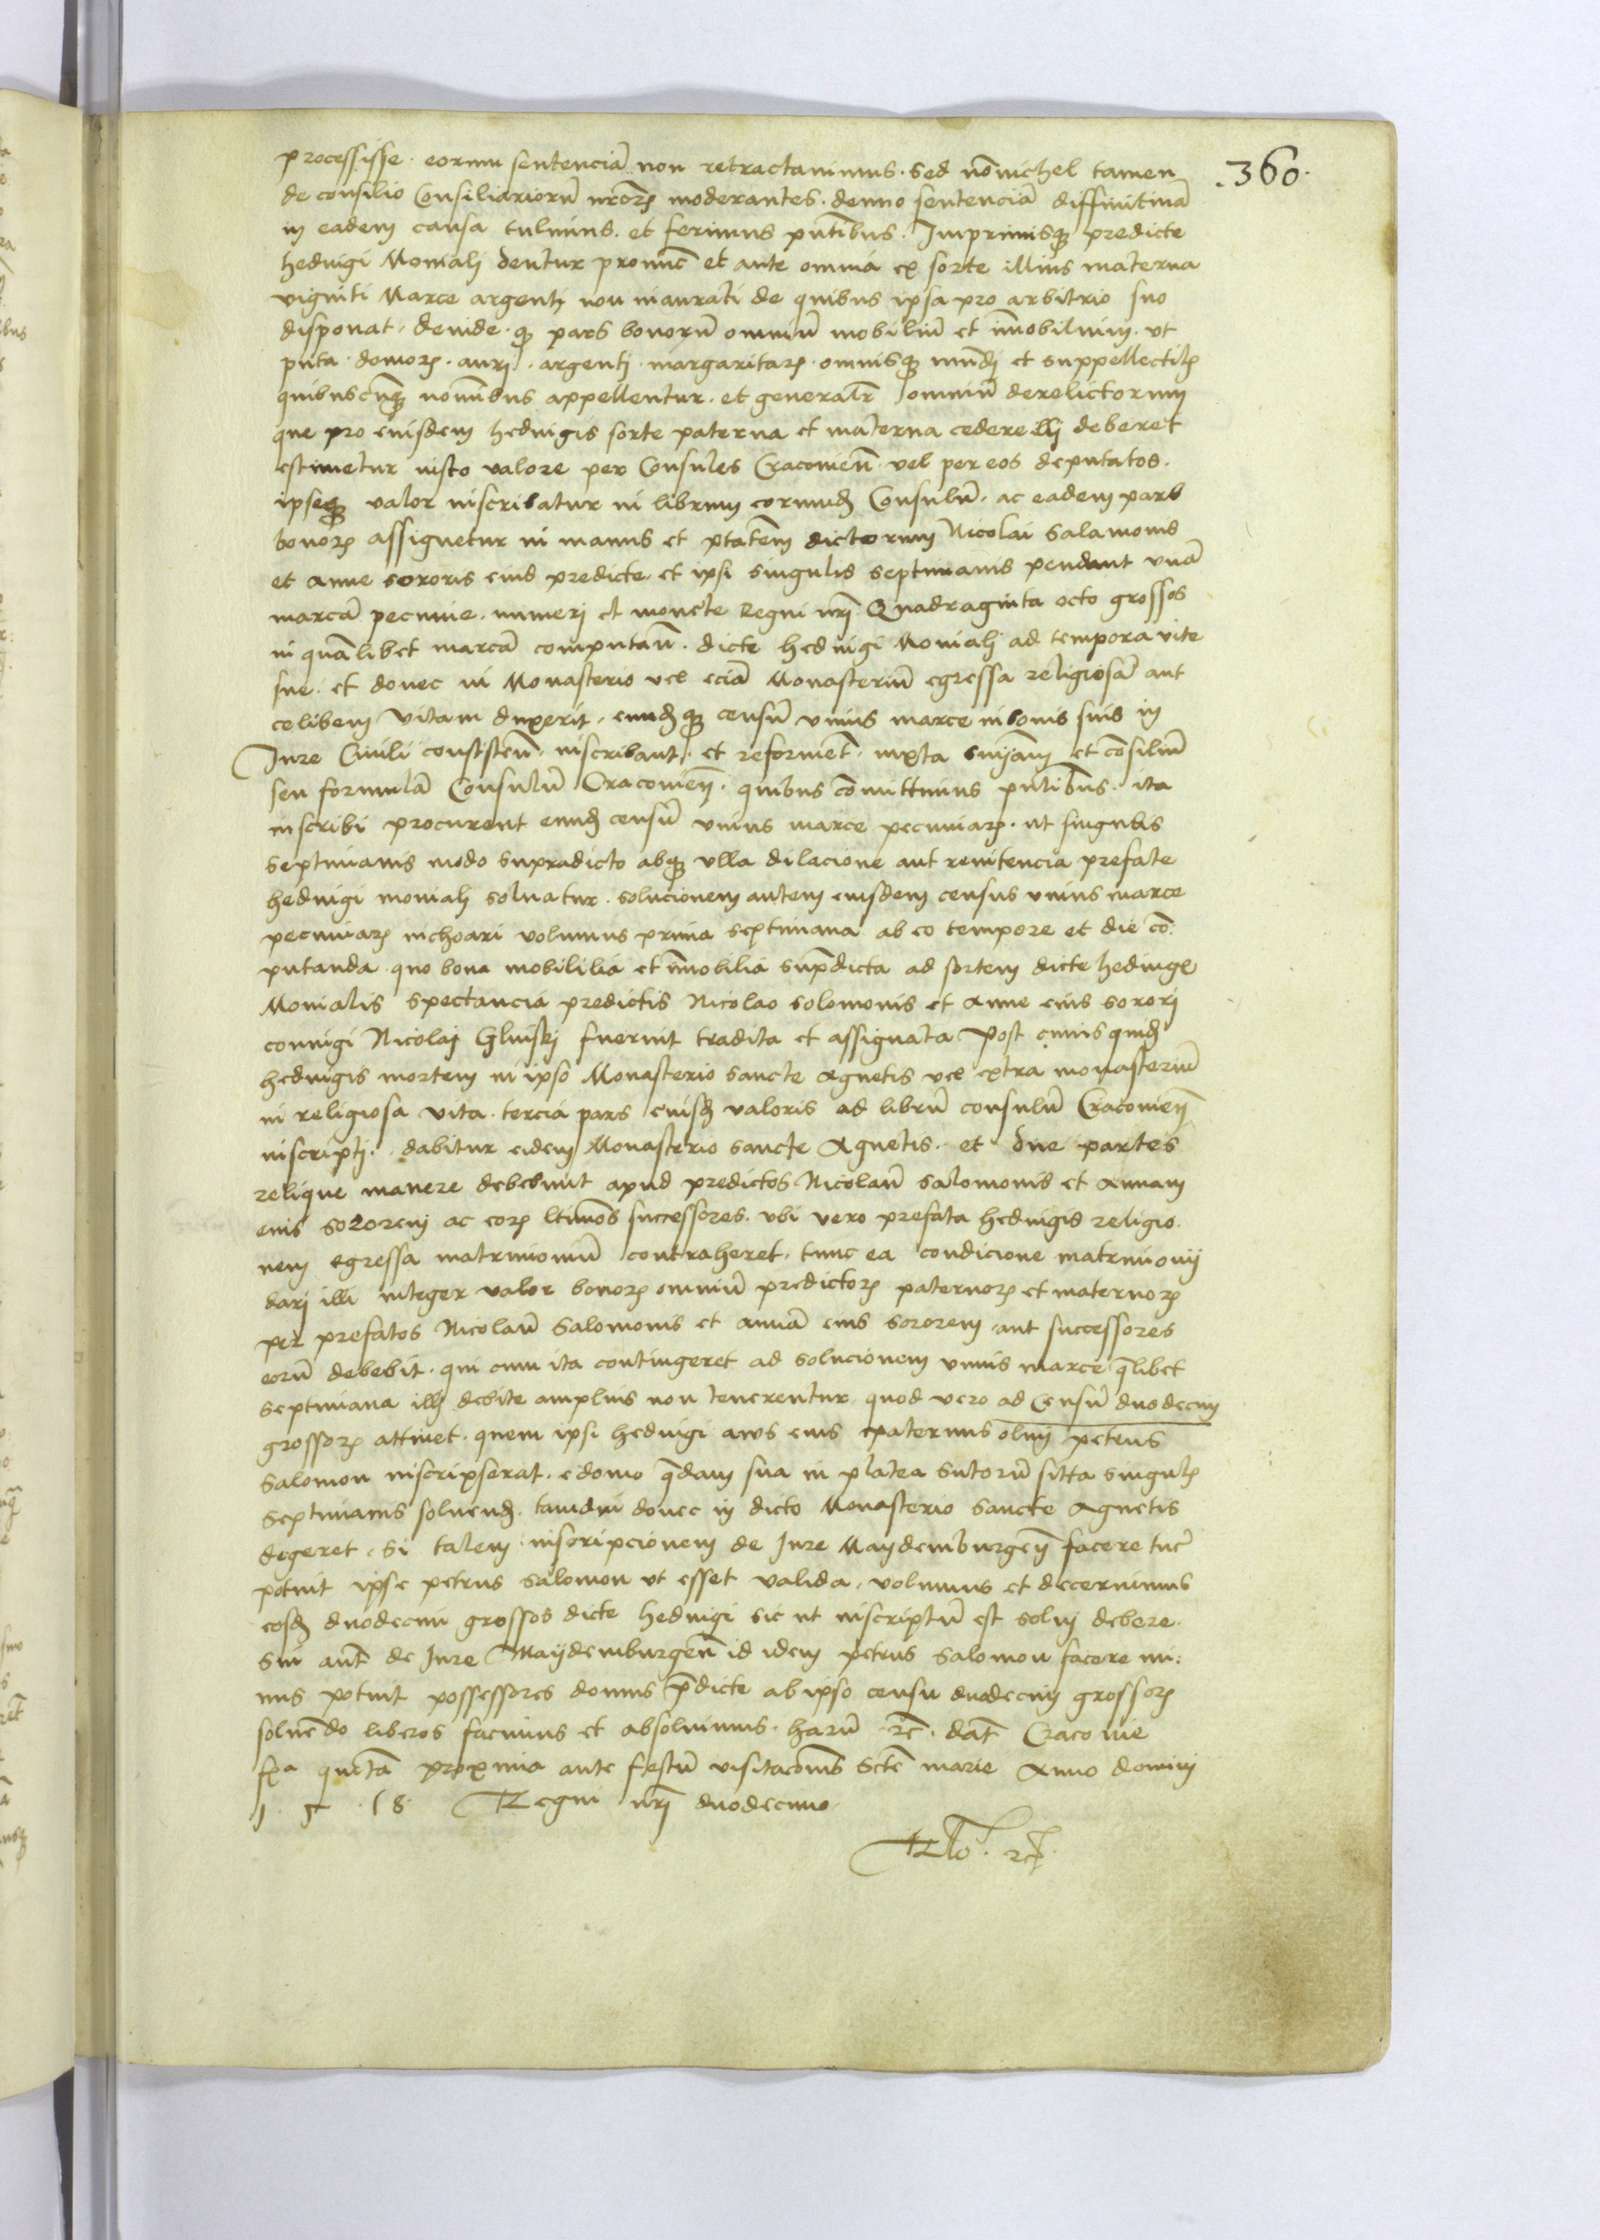 .360.
processisse. eorum sentenciā non retractavimus. sed nōnichel tamen
de consilio Consiliariorū nrorꝝ moderantes. denuo sentenciā diffinitivā
in eadem causa tulimus. et ferimus pn̄tibus. Imprimisqꝫ predicte
hedvigi Moniali dentur pronūc et ante omnia ex sorte illius materna
viginti Marce argentj non inaurati de quibus ipsa pro arbitrio suo
disponat. deinde. qꝫ pars bonorū omniū mobiliū et īmobilium. ut
puta. domorꝝ. aurj. argentj. margaritarꝝ. omnisqꝫ mūdj et suppellectilꝭ
quibuscūqꝫ nomībus appellentur. et generalr̄ omniū derelictorum
que pro eiusdem hedvigis sorte paterna et materna cedere illj deberet
estimetur iusto valore per Consules Cracovien̄ vel per eos deputatos.
ipseqꝫ valor inscribatur in librum eorumdꝫ Consulū. ac eadem pars
bonorꝝ assignetur in manus et ptātem dictorum Nicolai Salamonis
et Anne sororis eius predicte. et ipsi singulis septimanis pendant unā
marcā pecunie. numerj et monete Regni nrī Quadraginta octo grossos
in quālibet marcā computan̄. dicte hedvigi Monialj ad tempora vite
sue. et donec in Monasterio vel eciā Monasteriū egressa religiosā aut
celibem vitam duxerit. eundꝫqꝫ censū unius marce in bonis suis in
Jure Civili consisten̄. inscribant. et reforment. iuxta sn̄iam et cōsiliū
seu formulā Consulū Cracovien̄. quibus cōmittimus pn̄tibus. ita
inscribi procurent eundꝫ censū unius marce pecuniarꝝ. ut singulis
septimanis modo supradicto absqꝫ ulla dilacione aut renitencia prefate
hedvigi monialj solvatur. solucionem autem eiusdem census unius marce
pecuniarꝝ inchoari volumus prima septimana ab eo tempore et die cō:
putanda. quo bona mobililia et īmobilia supdicta ad sortem dicte hedvige
Monialis spectancia predictis Nicolao solomonis et Anne eius sororj
coniugi Nicolaj Glinskj fuerint tradita et assignata Post cuius quidꝫ
hedvigis mortem in ipso Monasterio sancte Agnetis vel extra monasteriū
in religiosa vita. tercia pars eiusdꝫ valoris ad librū consulū Cracovien̄
inscriptj. dabitur eidem Monasterio sancte Agnetis. et due partes
relique manere debebunt apud predictos Nicolaū salomonis et Annam
eius sororem ac eorꝝ ltimos successores. ubi vero prefata hedvigis religio.
nem egressa matrimoniū contraheret. tunc ea condicione matrimonij
darj illi integer valor bonorꝝ omniū predictorꝝ paternorꝝ et maternorꝝ
per prefatos Nicolaū Salomonis et annā eius sororem aut successores
eorū debebit. qui cum ita contingeret ad solucionem unius marce qlibet
septimana illj debite amplius non tenerentur. quod vero ad Censū duodecim
grossorꝝ attinet. quem ipsi hedvigi avus eius expaternus olim petrus
Salomon inscripserat. e domo qdam sua in platea sutorū sitta singulꝭ
septimanis solvendꝫ. tamdiu donec in dicto Monasterio sancte Agnetis
degeret. si talem inscripcionem de Jure Maydemburgen̄ facere tūc
potuit ipse petrus salomon ut esset valida. volumus et decernimus
eosdꝫ duodecim grossos dicte hedvigi sic ut inscriptū est solvj debere.
Sin aūt de Jure Maijdemburgen̄ id idem petrus salomon facere mi:
nus potuit possessores domus pdicte ab ipso censu duodecim grossorꝝ
solvēdo liberos facimus et absolvimus. harū rc̄. dat̄ Cracovie
fxa quīta proxima ante festū visitacōnis Sctē marie Anno domini
1. 5. 18. Regni nrī duodecimo.